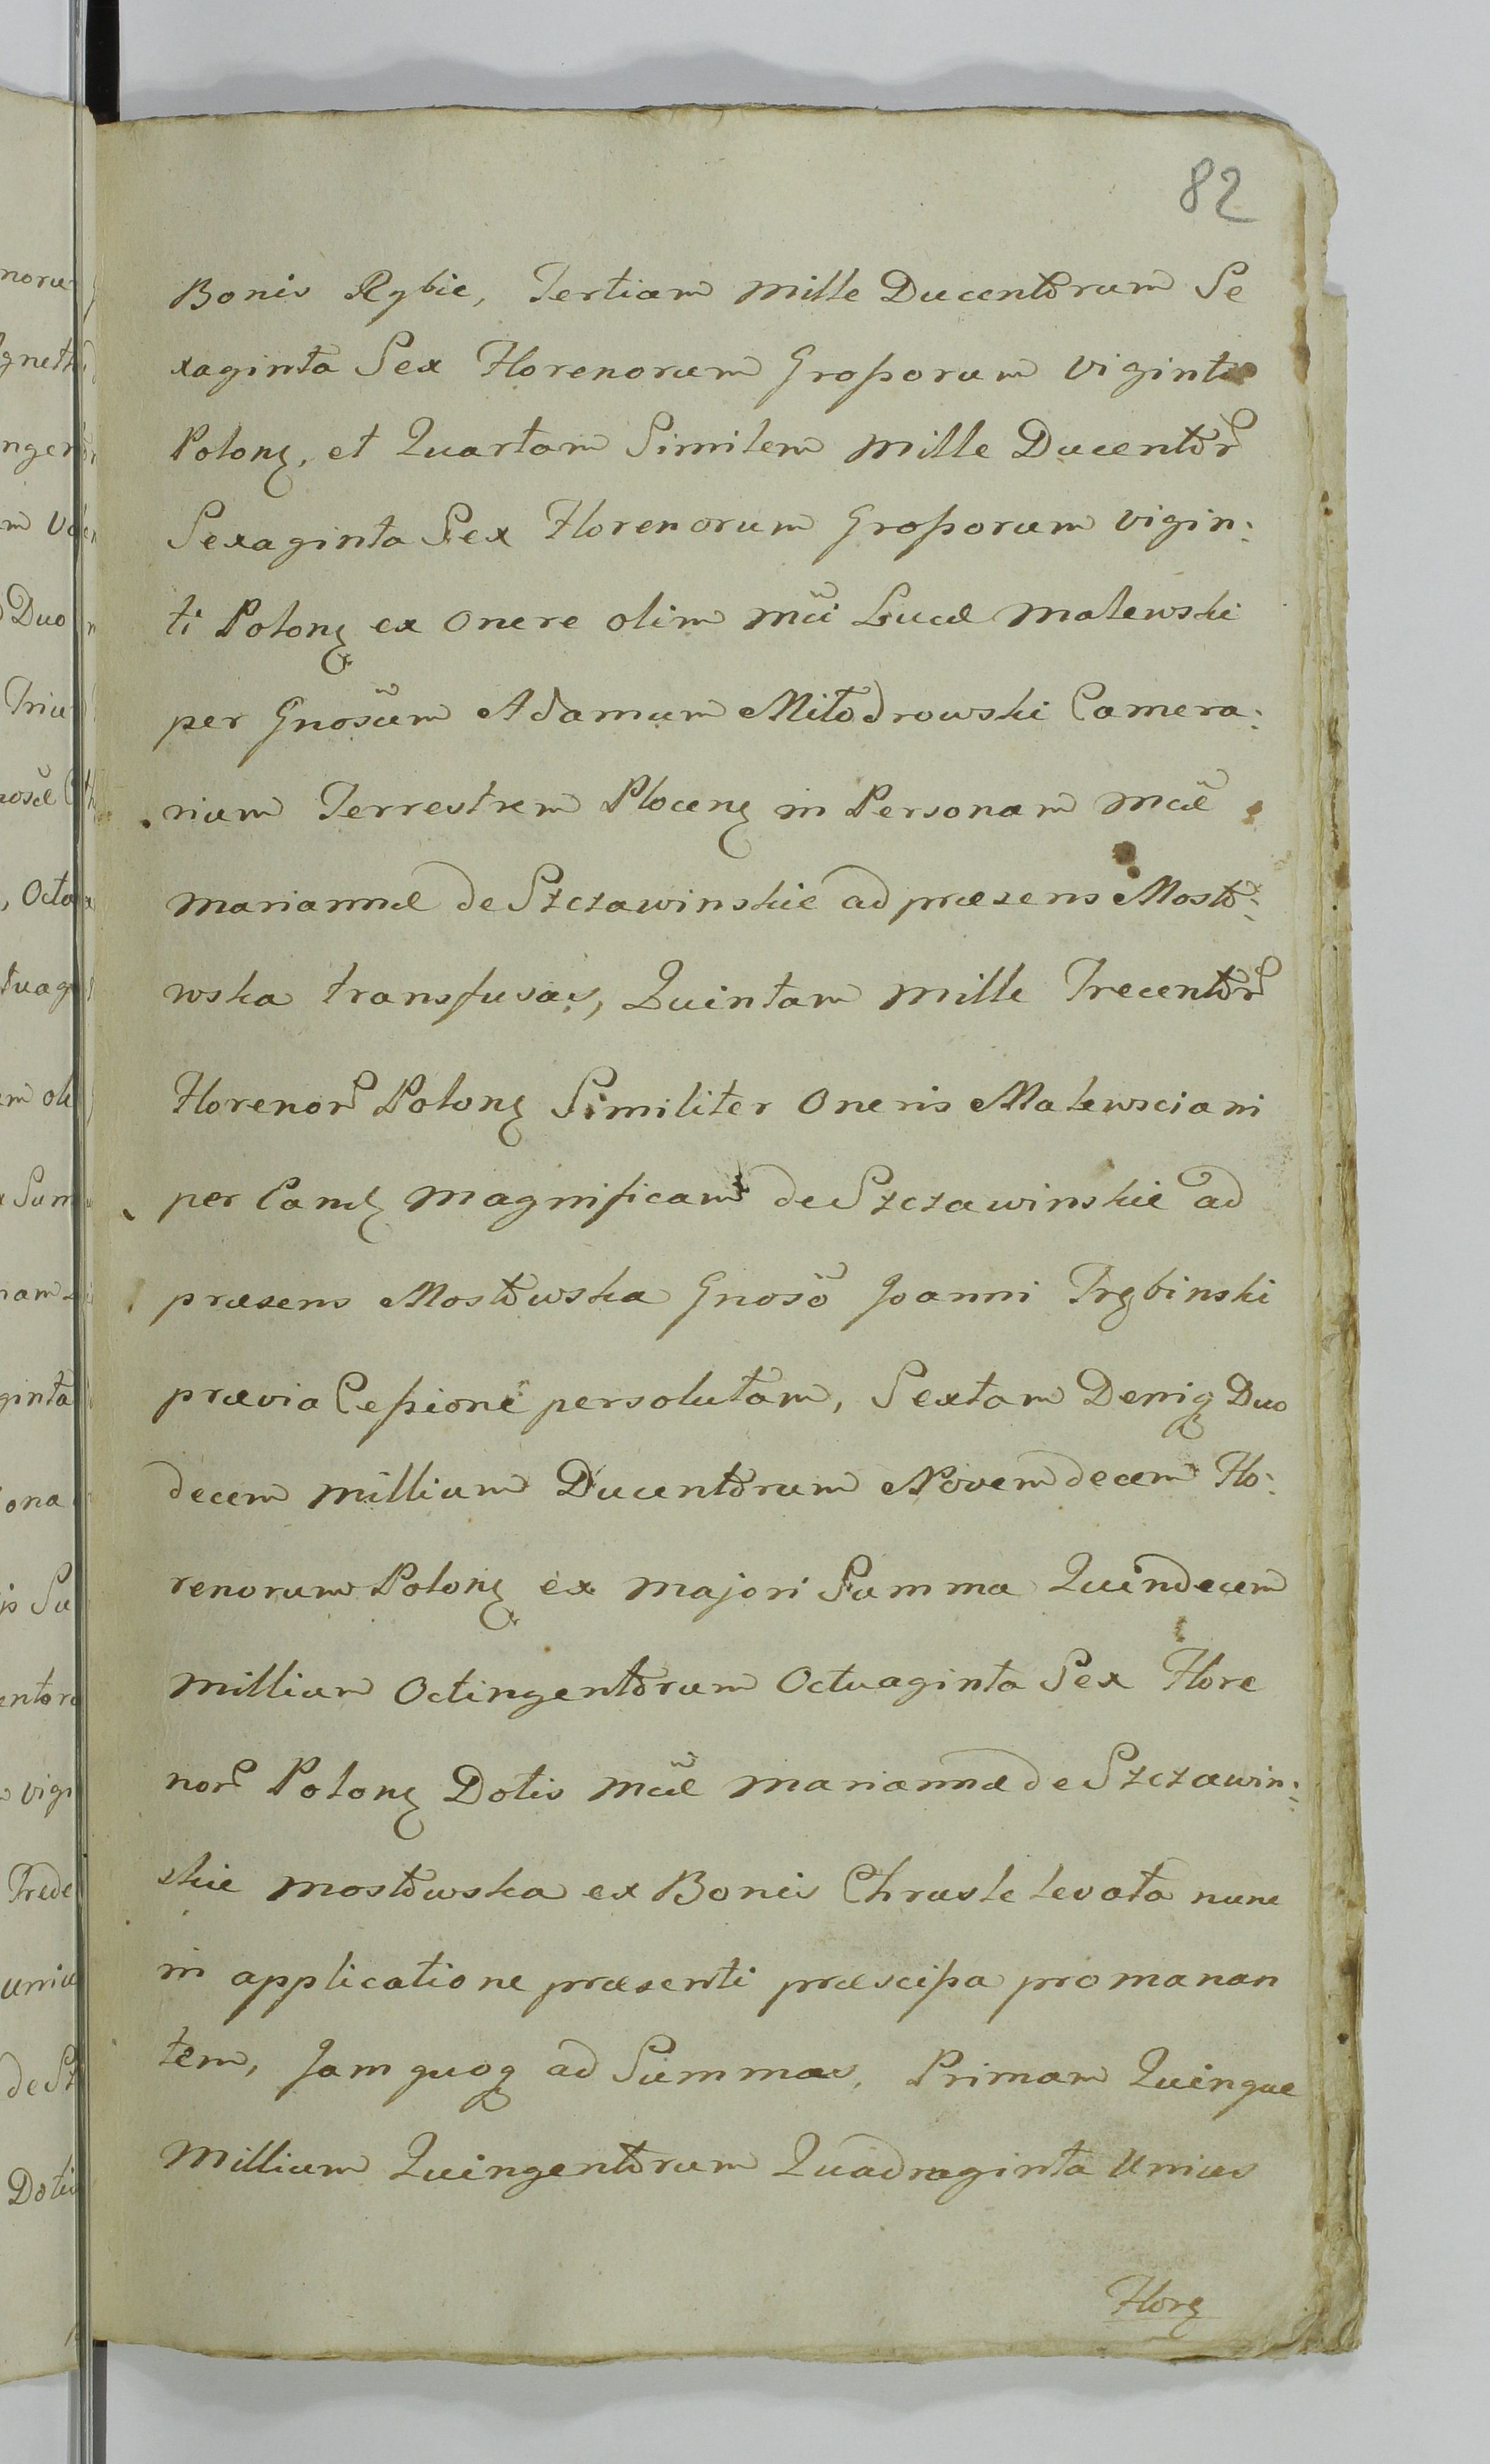 82
Bonis Rybie, Tertiam mille Ducentorum Se
xaginta Sex Florenorum Groszorum viginti
Polonę, et Quartam Similem mille Ducentor
Sexaginta Sex Florenorum Groszorum vigin:
ti Polonę ex onere olim Mci Lucæ Malewski
per Gnosum Adamum Miłodrowski Camera:
rium Terrestrem Plocenę in Personam Mcæ
Mariannæ de Szczawinskie ad præsens Mosto:
wska transfusas, Quintam mille Trecentor
Florenor Polonę Similiter Oneris Malewsciani
per Eandę Magnificam de Szczawinskie ad
præsens Mostowska Gnoso Joanni Trębinski
prævia Cessione persolutam, Sextam Deniq Duo
decem millium Ducentorum Novemdecem Flo:
renorum Polonę ex majori Summa Quindecem
millium Octingentorum Octuaginta Sex Flore
nor Polonę Dotis Mcæ Mariannæ de Szczawin:
skie Mostowska ex Bonis Chrusle levata nunc
in applicatione præsenti præscissa promanan
tem, Jam quoq ad Summas, Primam Quinque
Millium Quingentorum Quadraginta Unius
Florę